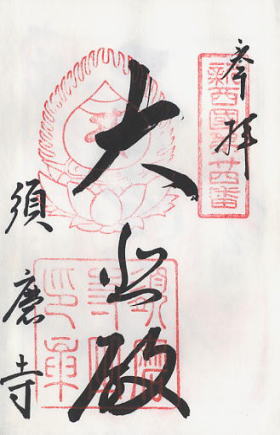 奉拝
新西国第廿四番
大悲殿
須磨寺